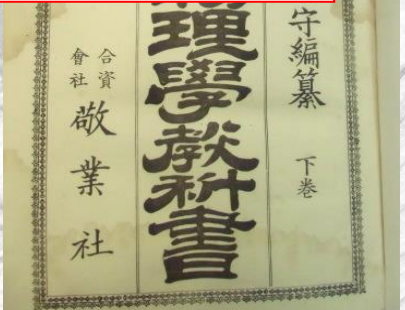 守編纂 下巻
理學教科書
合資
會社
敬業社